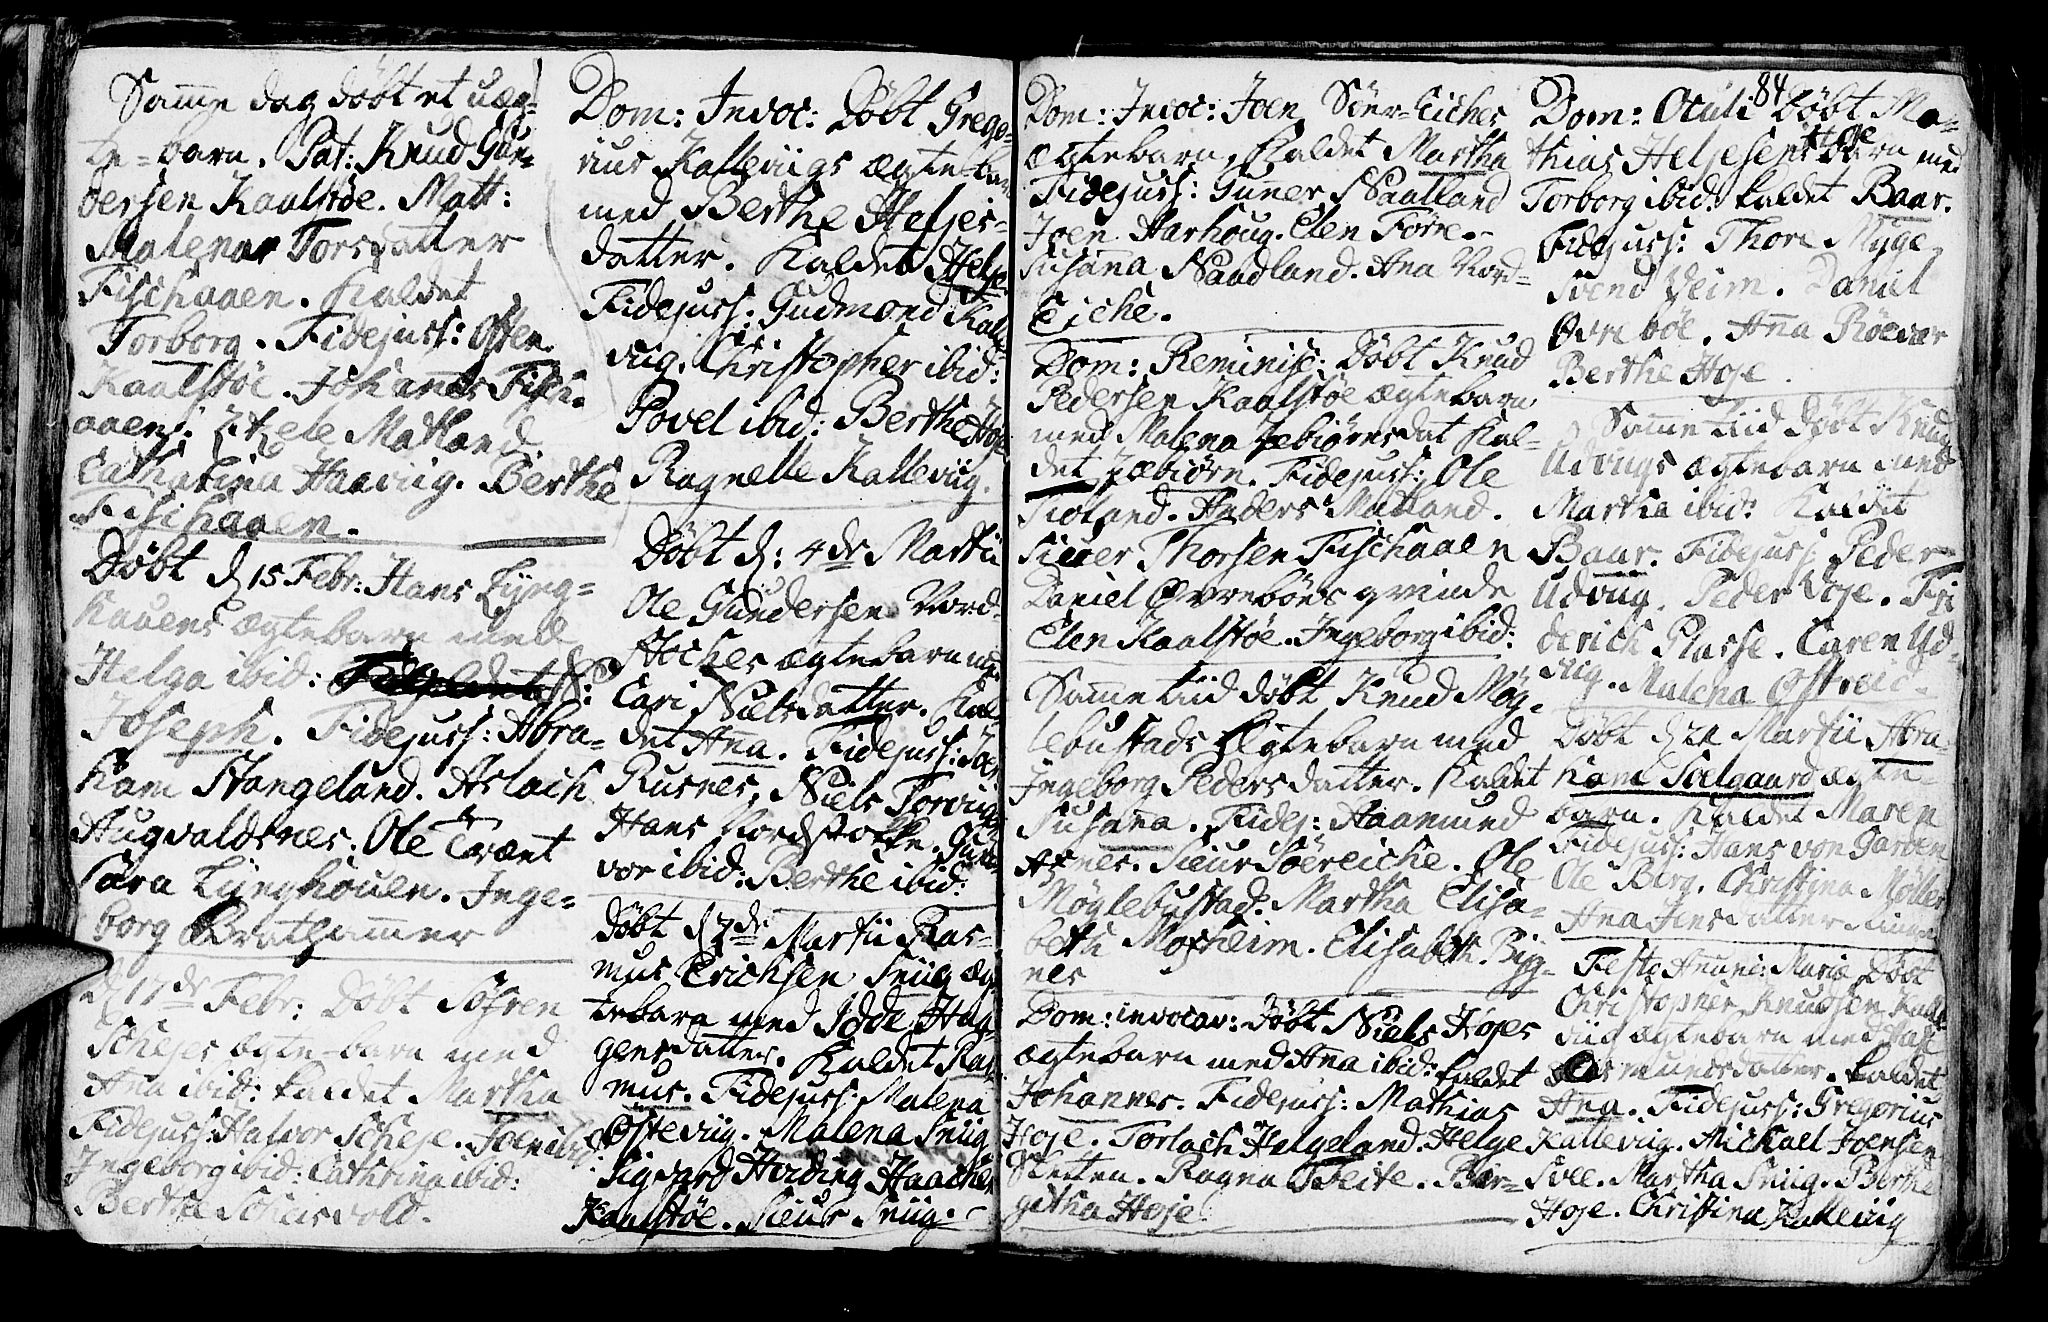 Samme dag döbt et uæg-
te-barn. Pat: Knud Gun-
dersen Kaalstöe. Matt:
Malena Torsdatter
Fischaaen. Kaldet
Torborg. Fidejuss: Osten
Kaalstöe. Johannes Fisch-
aaen. Matland.
Cathatina Haaviig. Berthe
Fischaaen.
Döbt d 15 Febr: Hans Lÿng-
hauens ægtebarn med
Helga ibid:
Joseph. Fidejuss: Abra-
ham Stangeland. Aslach
Augvaldsnes. Ole Tvært
Sara Lÿnghouen. Inge-
borg Brathammer
d 17de Febr: Döbt Söfren
Schejes ægte-barn med
Ana ibid: kaldet Martha
Fidejuss: Halvor Scheje. Joen ibid
Ingeborg ibid: Cathrina ibid:
Bertha Scheisvold.
Dom: Invoc: Döbt Grego-
rius Kalleviigs ægte-barn
med Berthe Heljes-
datter. Kaldet Helje
Fidejuss: Gudmond Kalle-
viig. Christopher ibid:
Povel ibid: Berthe Hoje
Ragnelle Kalleviig.
Döbt d: 4de Martii
Ole Gundersen Nord-
Stockes ægtebarn med
Cari Nielsdatter. Kal-
det Ana. Fidejuss: Joen
Rusnes, Niels Torviig
Hans Nordstocke. Gun-
vor ibid: Berthe ibid:
Döbt d 7de Martii Ras-
mus Erichsen Sniig æg-
tebarn med Idde Hag-
gensdatter. Kaldet Ras-
mus. Fidejuss: Malena
Osteviig. Malena Sniig
Sigvard Herding Haachen
Kaalstöe. Sieur Sniig.
84
Dom: Invoc: Joen Söer-Eiches
ægtebarn, Kaldet Martha
Fidejuss: Guner Naatland
Joen Aarhoug. Elen Förre.
Susanna Naadland. Ana Nord-
Eiche.
Dom: Reminisc: Döbt Knud
Pedersen Kaalstöe ægtebarn
med Malena Zebiörnsdat kal-
det Zæbiörn. Fidejuss: Ole
Tioland. Anders Matland.
Sieuer Thorsen Fischaaen
Daniel Øvreböes qvinde
Elen Kaalstöe. Ingeborg ibid:
Samme tiid döbt Knud Mög-
lebustads Ægtebarn med
Ingeborg Pedersdatter. Kaldet
Susanna. Fidej: Haamund
Agnes. Sieur Söereiche. Ole
Möglebustad. Martha Elisa-
beth Moxheim. Elisabeth Byg-
nes
Dom: invocav: Döbt Niels Hojes
ægtebarn med Ana ibid: kaldet
Johannes. Fidejuss: Mathias
Hoje. Torlach Helgeland. Helge
Sletten. Ragna Feite. Bir-
githa Hoje.
Dom: Oculi Döbt Ma-
thias Heljesen Hoje barn med
Torborg ibid: kaldet Baar.
Fidejuss: Thore Myge,
Svend Veim. Daniel
Øvre böe. Anna Röevær
Berthe Hoje.
Samme tiid döbt Knud
Udviigs ægtebarn med
Martha ibid: kaldet
Baar. Fidejuss: Peder
Udviig. Peder Hoje. Fri
derich Plasse. Caren Ud-
viig. Malena Østreic-
Döbt d 24 Martii Abra
ham Sælgaard ægte-
barn. Kaldet Maren
Fidejuss: Hans von Garven
Ole Berg. Christina Möller
Ana Jensdatter
Festo Annunc: Mariæ Döbt
Christopher Knudsen Kalle-
viig ægtebarn med
Aasmundsdatter. kaldet
Ana. Fidejuss: Gregorius
Kalleviig. Michael Joensen
Svee. Martha Sniig. Berthe
Hoje. Christina Kalleviig